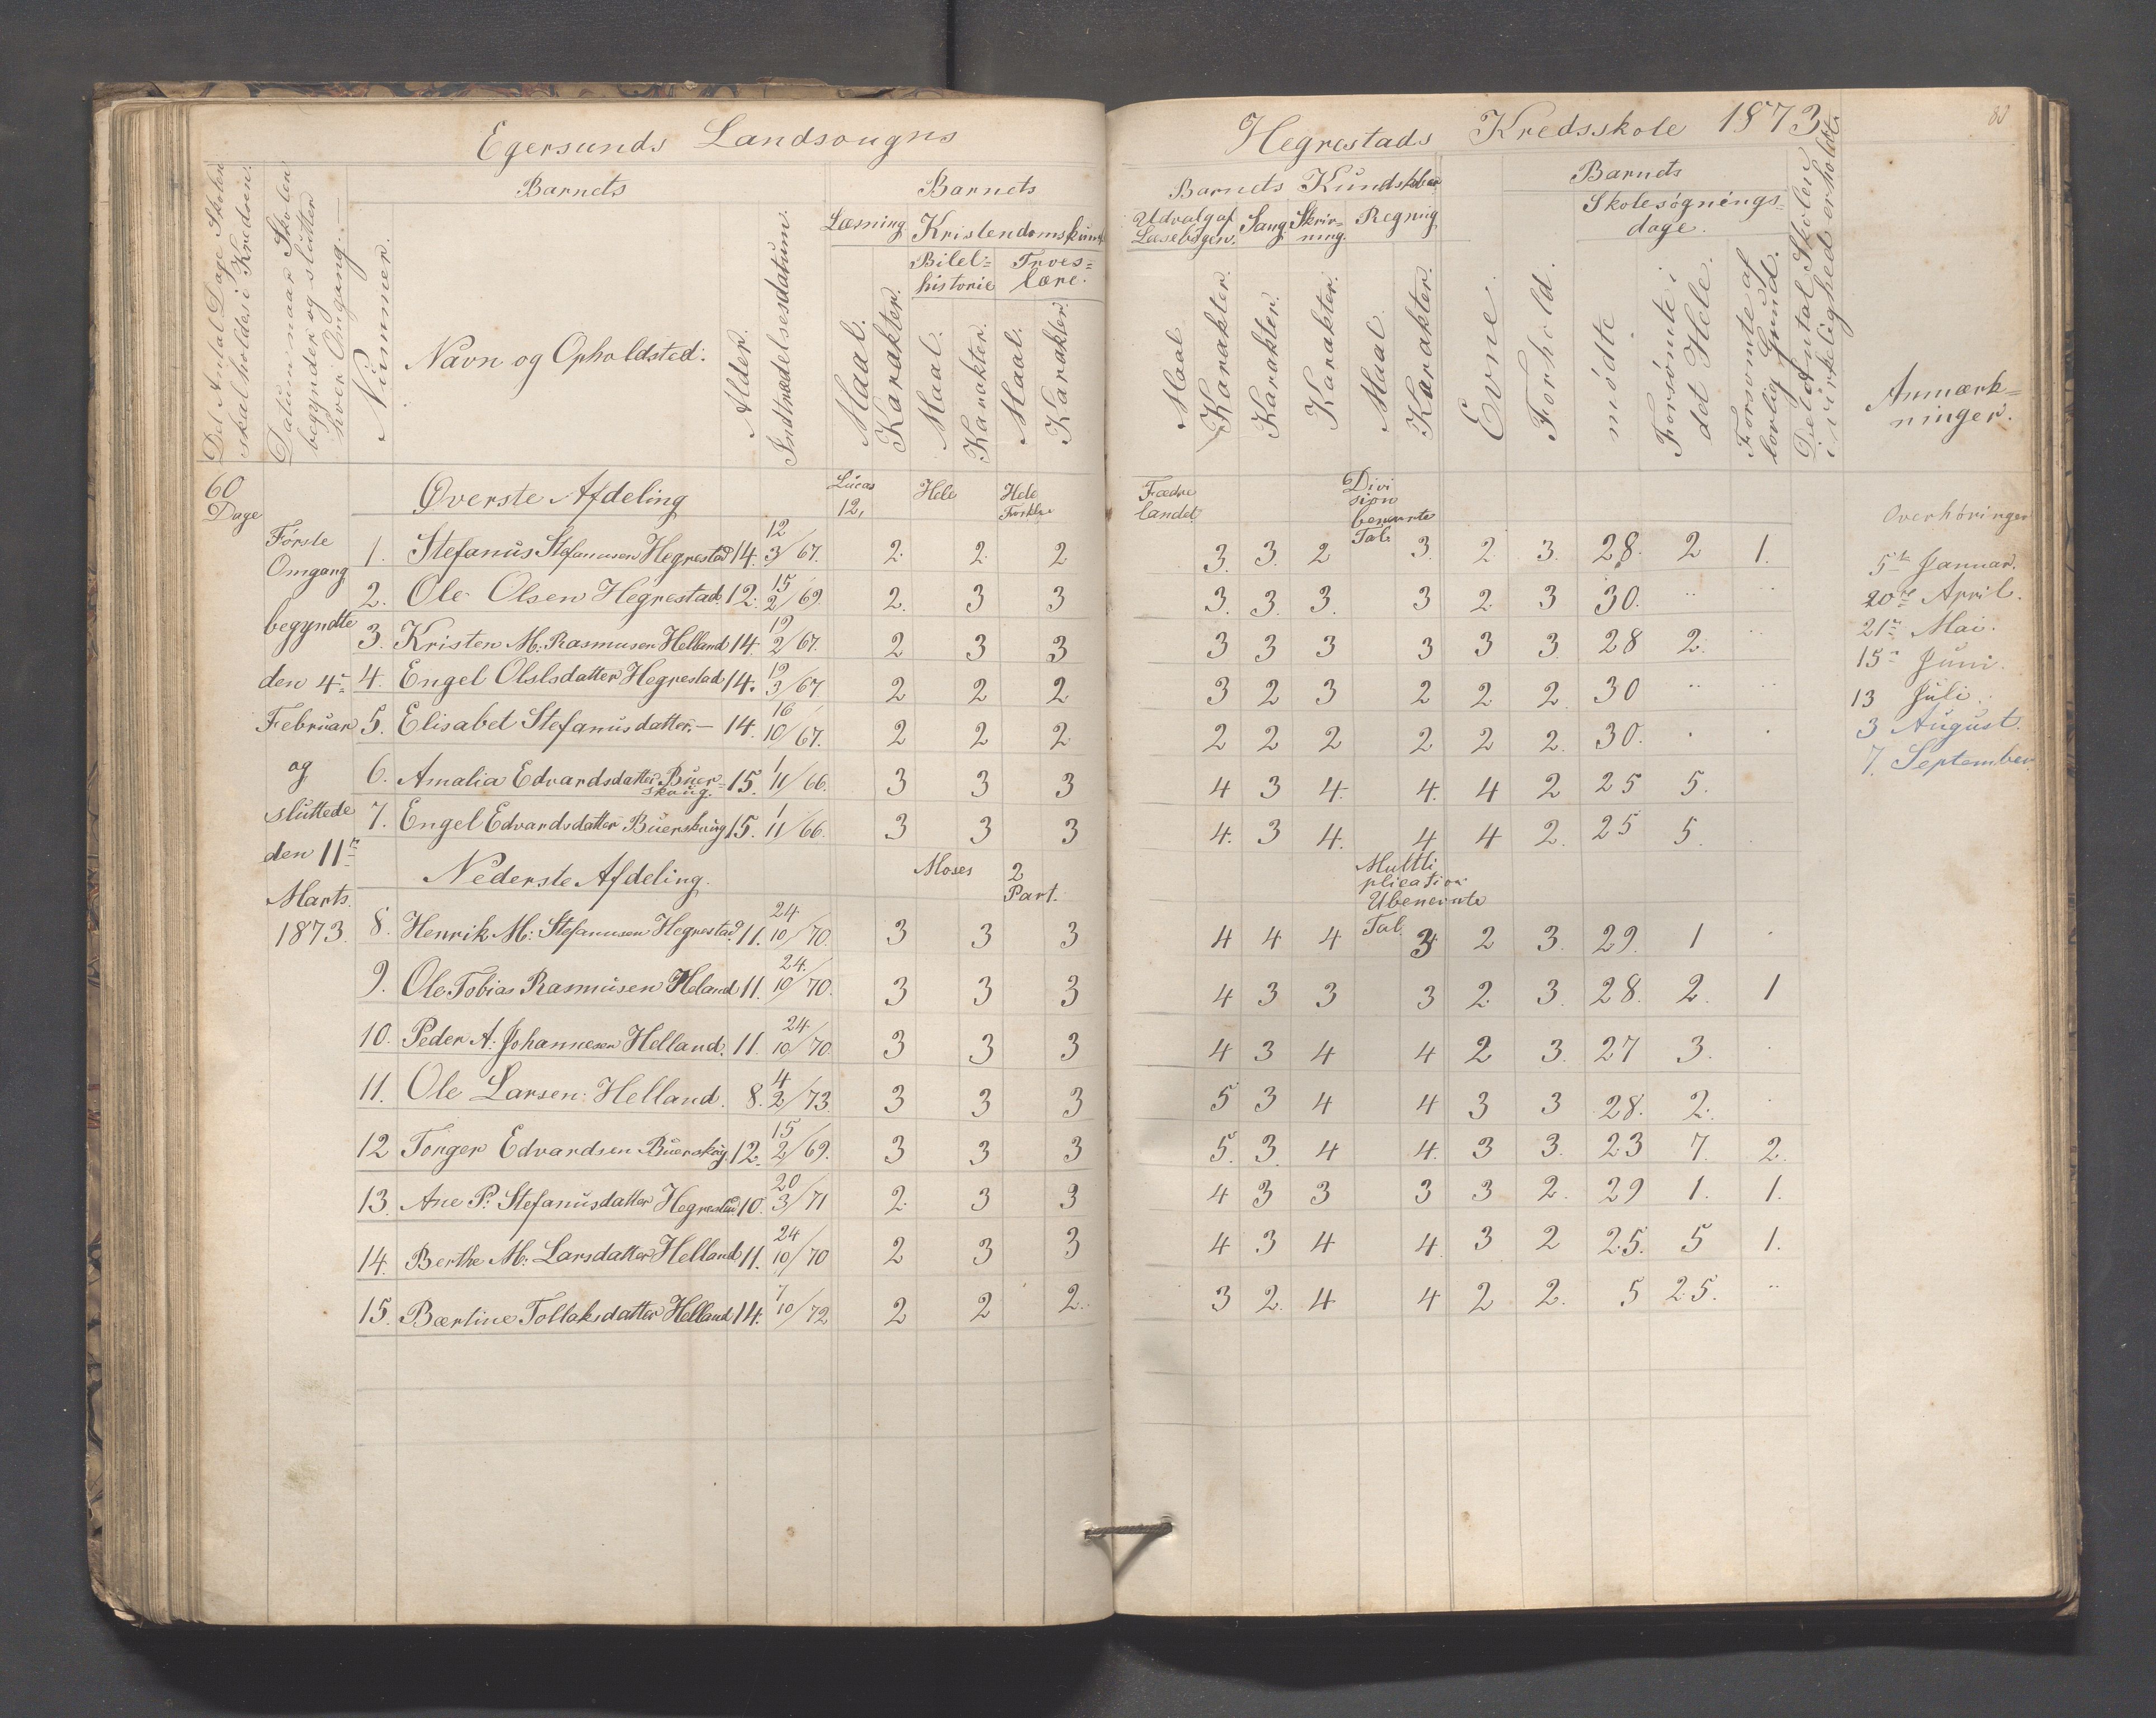 Egersunds Landsougns
Hegrestads Kredsskole 1873
Det Antal Dage Skolen skal holdes i Kredsen:
Datum naar Skolen begynder og slutter hver Omgang. —
Nummer.
Barnets
Navn og Opholdsted.
Alder.
Indtrædelsesdatum.
Barnets
Læsning
Maal.
Karakter.
Kristendomskund
Bibel=
historie
Maal.
Karakter.
Troes=
lære.
Maal.
Karakter.
Barnets Kundskaber
Udvalg af
Læsebogen.
Maal
Karakter.
Sang.
Karakter.
Skriv=
ning.
Karakter.
Regning
Maal.
Karakter.
Evne.
Forhold.
Barnets
Skolesøgnings=
dage.
mødte
Forsømte i
det Hele.
Forsømte af
lovlig Grund.
Det Antal Skolen
i virkelighed erholdt.
Anmærk=
ninger.
60
Dage
Første
Omgang
begyndte
den 4de
Februar
og
sluttede
den 11te
Marts.
1873.
Øverste Afdeling Lucas 12, Hele Hele Forkla Fædre landet Divi sion benevnte Tal.
1. Stefanus Stefanusen Hegrestad 14. 12 3/67. 2. 2. 2 3. 3. 2 3. 2. 3. 28. 2 1.
2. Ole Olsen Hegrestad. 12. 15 2/69. 2. 3 3 3. 3. 3. 3 2 3 30. .. ..
3. Kristen M. Rasmusen Helland 14. 19 2/67. 2 3 3 3 3 3 3 3 3. 28 2. ..
4. Engel Olslsdatter Hegrestad 14. 19 3/67 2 2 2 3 2 3 2 2 2. 30 .. ..
5. Elisabet Stefanusdatter. — 14. 16 10/67. 2 2 2 2 2 2 2 2 2. 30. . .
6. Amalia Edvardsdatter Buer=skoug. 15. 1 11/66. 3 3 3 4 3 4. 4. 4 2 25 5.
7. Engel Edvardsdatter Buerskoug 15. 1 11/66. 3 3 3 4. 3 4. 4 4 2. 25 5. .
Nederste Afdeling. Moses 2 Part. Multi plication Ubenevnte Tal.
8. Henrik M. Stefanusen Hegrestad 11. 24 10/70. 3 3 3 4 4 4 3 2 3. 29. 1 .
9. Ole Tobias Rasmusen Heland 11. 24. 10/70. 3 3 3 4 3 3 3 2. 3. 28. 2. 1
10. Peder A. Johannesen Helland. 11. 24 10/70. 3 3 3 4 3 4 4 2 3. 27 3. .
11. Ole Larsen Helland. 8. 4 2/73. 3 3 3 5 3 4 4 3 3 28. 2. .
12 Tonger Edvardsen Buerskoug 12. 15 2/69. 3 3 3 5. 3. 4 4. 3 3. 23 7. 2.
13. Ane P. Stefanusdatter Hegrestad 10. 20 3/71 2. 3 3 4 3 3 3 3 2. 29 1. 1.
14. Berthe M. Larsdatter Helland 11. 24 10/70 2 3 3 4 3 4 4. 3 2 25. 5 1.
15. Bærtine Tollaksdatter Helland 14. 7 10/72 2 2 2. 3 2. 4 4 2 2. 5 25. ..
Overhøringer
5te Januar.
20de April.
21de Mai.
15de Juni.
13 Juli.
3 August.
7. September.